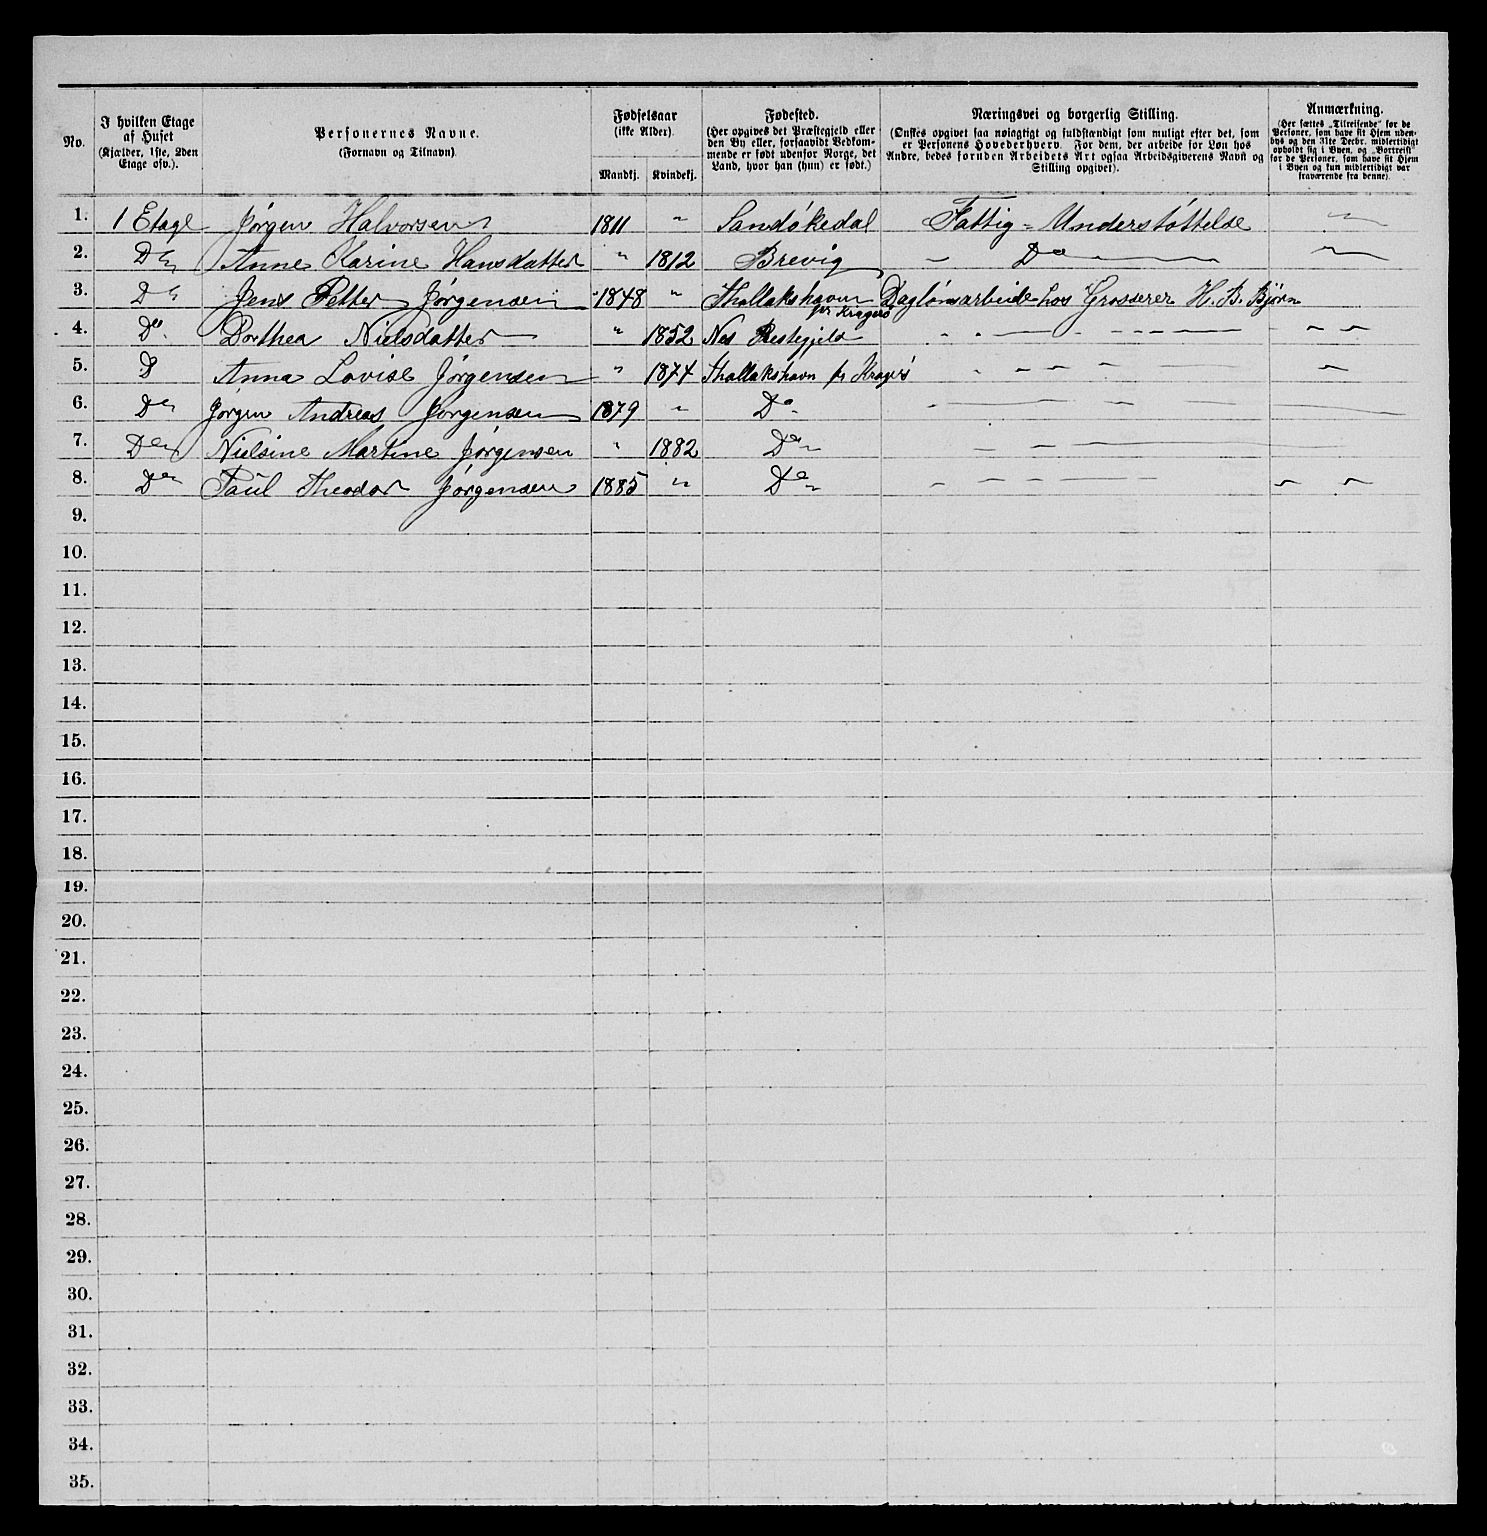 No.
I hvilken Etage af Huset (Kjælder, 1ste, 2den Etage osv.).
Personernes Navne. (Fornavn og Tilnavn).
Fødselsaar (ikke Alder). Mandkj. Kvindekj.
Fødested. (Her opgives det Præstegjeld eller den By eller, forsaavidt Vedkommende er født udenfor Norge, det Land, hvor han (hun) er født.)
Næringsvei og borgerlig Stilling. (Ønskes opgivet saa nøiagtigt og fuldstændigt som muligt efter det, som er Personens Hovederhverv. For dem, der arbeide for Løn hos Andre, bedes foruden Arbeidets Art ogsaa Arbeidsgiverens Navn og Stilling opgivet).
Anmærkning. (Her sættes „Tilreisende“ for de Personer, som have sit Hjem udenbys og den 31te Decbr. midlertidigt opholdt sig i Byen, og „Bortreist“ for de Personer, som have sit Hjem i Byen og kun midlertidigt var fraværende fra denne).
1. 1 Etage Jørgen Halvorsen 1811 " Sandøkedal Fattig-Understøttelse —
2. Do Anne Karine Hansdatter " 1812 Brevig — Do — —
3. Do Jens Petter Jørgensen 1848 " Thallakshavn pr Kragerø Daglønsarbeide hos Grosserer H. B. Bjørn
4. Do Dorthea Nielsdatter " 1852 Nes Prestegjeld — — —
5. D Anna Lovise Jørgensen " 1874 Thallakshavn pr Kragerø — — —
6. Do Jørgen Andreas Jørgensen 1879 " Do — — —
7. Do Nielsine Martine Jørgensen " 1882 Do — — —
8. Do Paul Theodor Jørgensen 1885 " Do — — —
9.
10.
11.
12.
13.
14.
15.
16.
17.
18.
19.
20.
21.
22.
23.
24.
25.
26.
27.
28.
29.
30.
31.
32.
33.
34.
35.